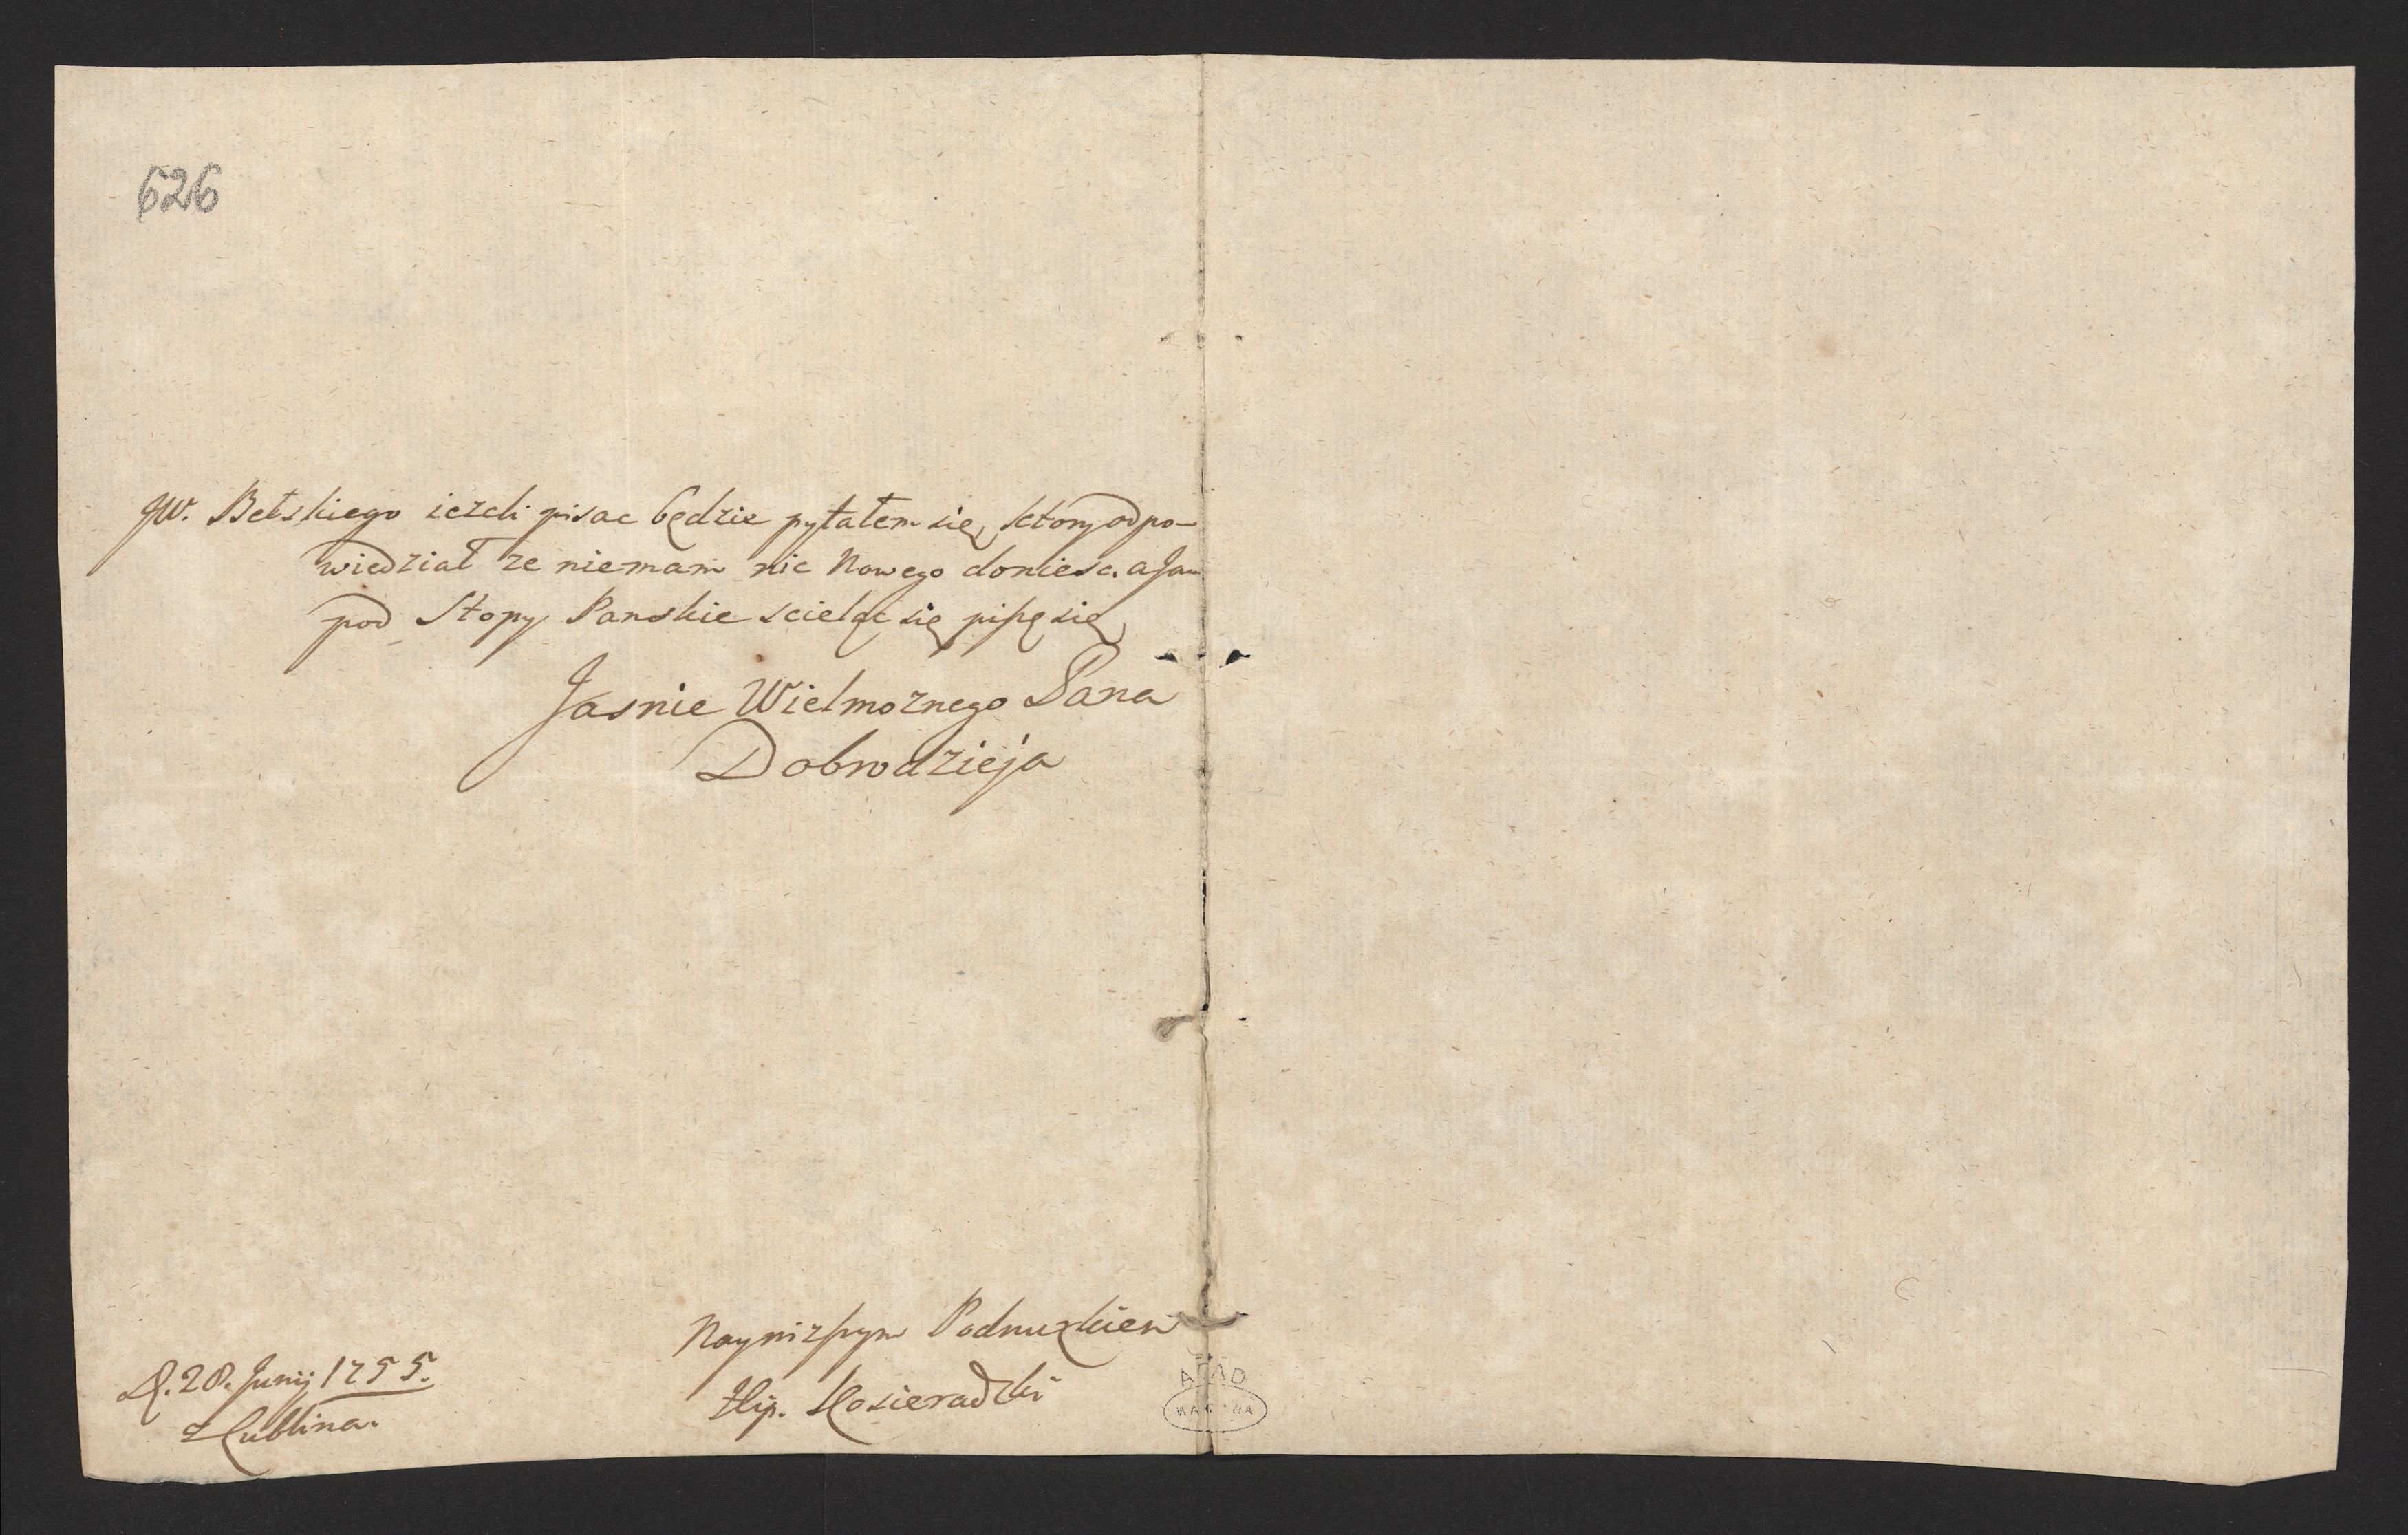 626
JW. Betskiego iezeli pisac będzie pytałem się, ktory odpo-
wiedział ze niemam nic Nowego doniesc. a Ja
pod Stopy Panskie scieląc się piszę się
Jasnie Wielmoznego Pana
Dobrodzieja
Nayniszym Podnuzkiem
Hip. Kosieradzki
D. 28. Junij 1755.
z Lublina.
AGAD
WARSZAWA